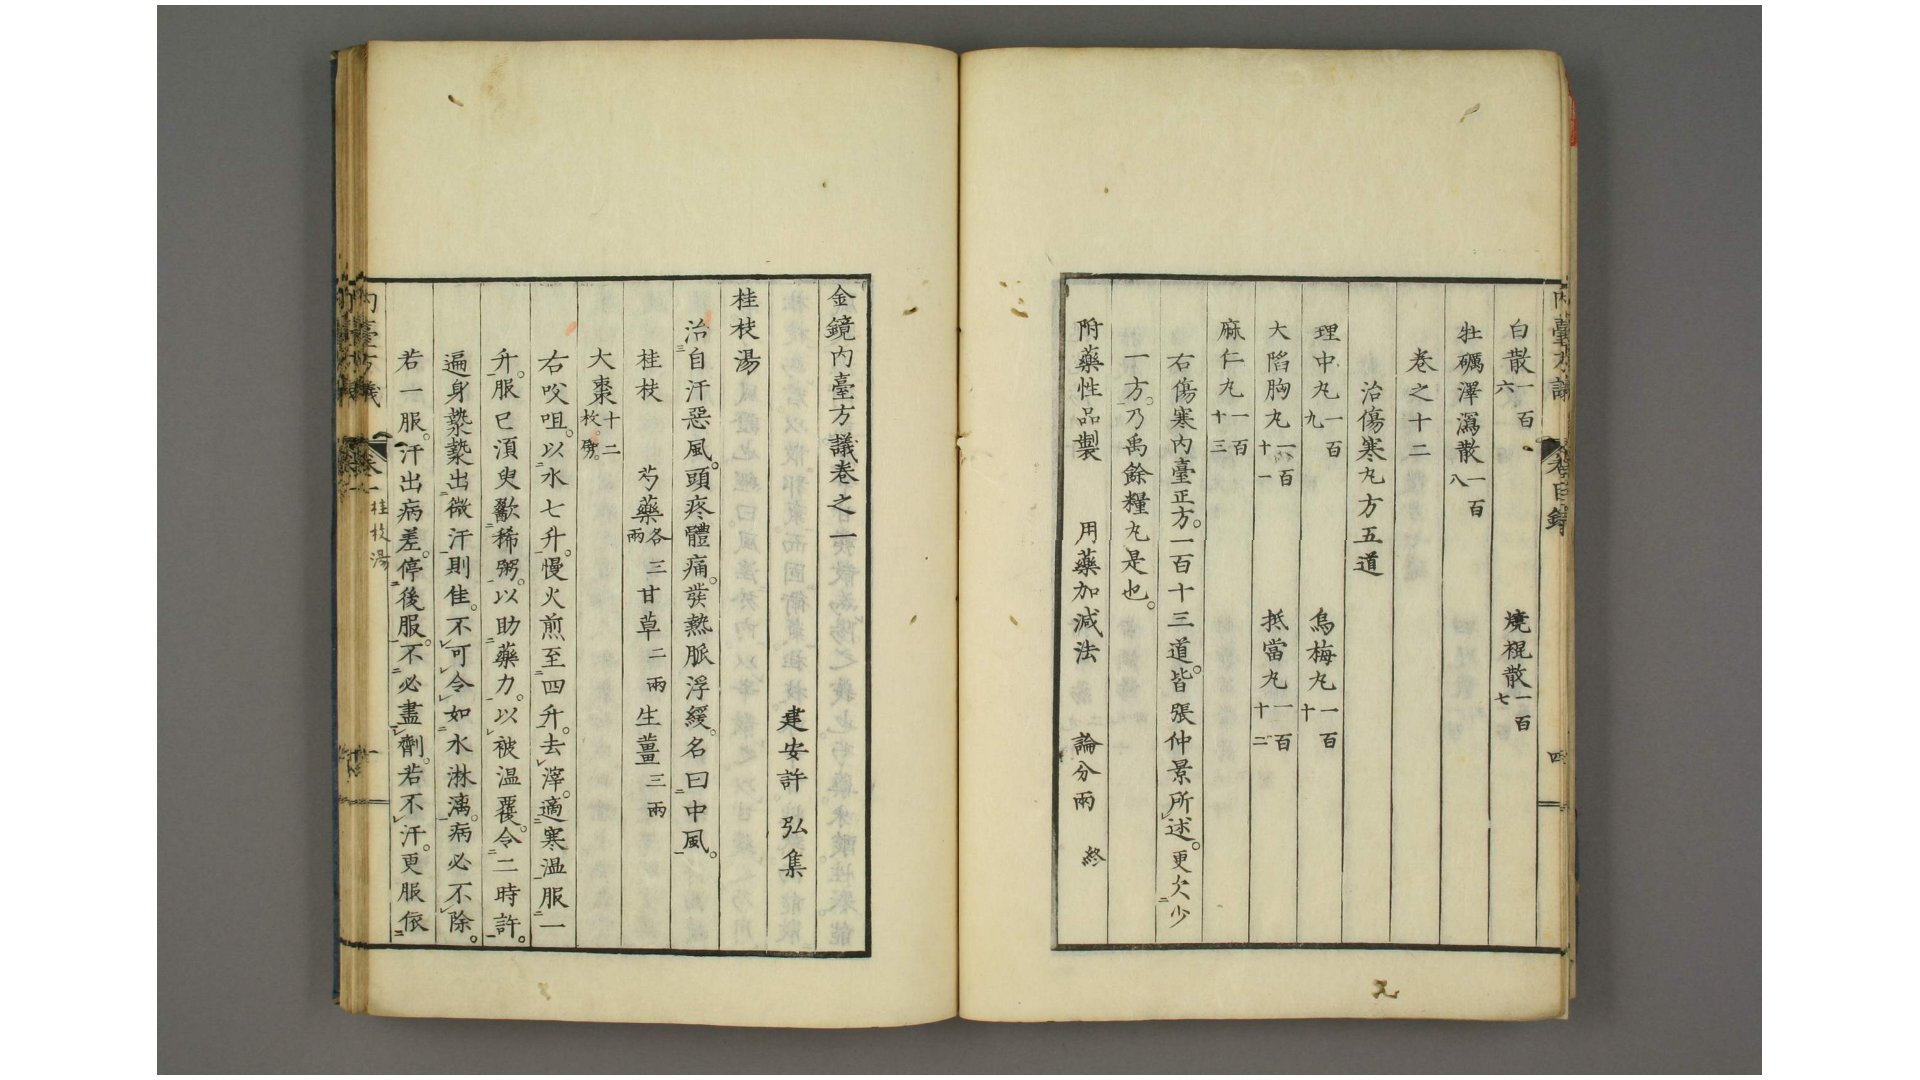 白散一百六　燒裩散一百七
牡礪澤瀉散一百八
卷之十二
治傷寒丸方五道
理中丸一百九　烏梅丸一百十
大陷胸丸一百十一　抵當丸一百十二
麻仁丸一百十三
右傷寒內臺正方。一百十三道。皆張仲景所述。更欠少
一方。乃禹餘糧丸是也。
附藥性品製　用藥加減法　論分兩　終
金鏡內臺方議卷之一
建安許弘集
桂枝湯
治自汗惡風。頭疼體痛。發熱脈浮緩。名曰中風。
桂枝　芍藥各三兩　甘草二兩　生薑三兩
大棗十二枚。劈。
右㕮咀。以水七升。慢火煎至四升。去滓。適寒温服一
升。服已須臾歠稀粥。以助藥力。以被温覆。令二時許。
遍身漐漐出微汗則佳。不可令如水淋漓。病必不除。
若一服。汗出病差。停後服。不必盡劑。若不汗。更服依
卷一　桂枝湯